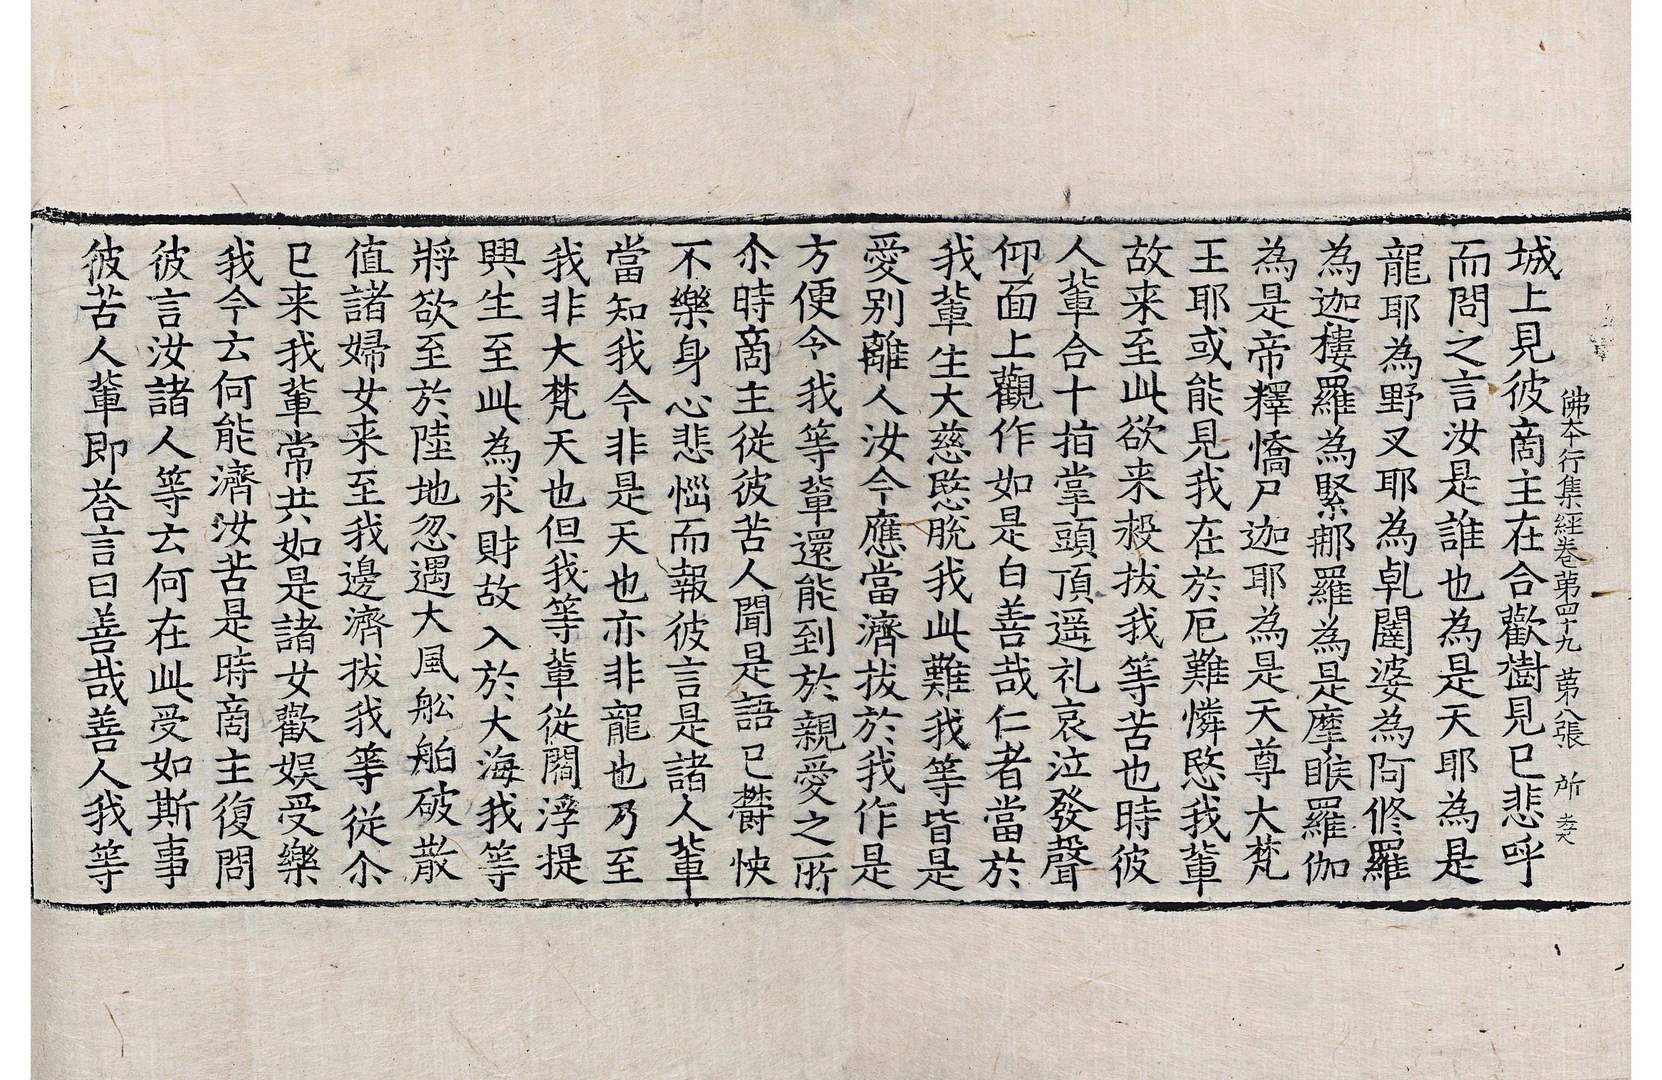 城上見彼啇主在合歡樹見已悲呼
佛夲行集經卷第四十九 苐八張 所
而問之言汝是誰也為是天耶為是
龍耶為野叉耶為乹闥婆為阿修羅
為迦樓羅為緊那羅為是摩睺羅伽
為是帝釋憍尸迦耶為是天尊大梵
王耶或能見我在於厄難憐愍我軰
故来至此欲来救拔我等苦也時彼
人軰合十指掌頭頂遥礼哀泣發聲
仰面上觀作如是白善哉仁者當於
我軰生大慈愍脫我此難我等皆是
愛别離人汝今應當濟拔於我作是
方便令我等軰還能到於親愛之所
尒時啇主從彼苦人聞是語已欝怏
不樂身心悲惱而報彼言是諸人軰
當知我今非是天也亦非龍也乃至
我非大梵天也但我等軰從閻浮提
興生至此為求財故入於大海我等
將欲至於陸地忽遇大風舩舶破散
值諸婦女来至我邊濟拔我等從尒
已来我軰常共如是諸女歡娱受樂
我今云何能濟汝苦是時啇主復問
彼言汝諸人等云何在此受如斯事
彼苦人軰即荅言曰善哉善人我等